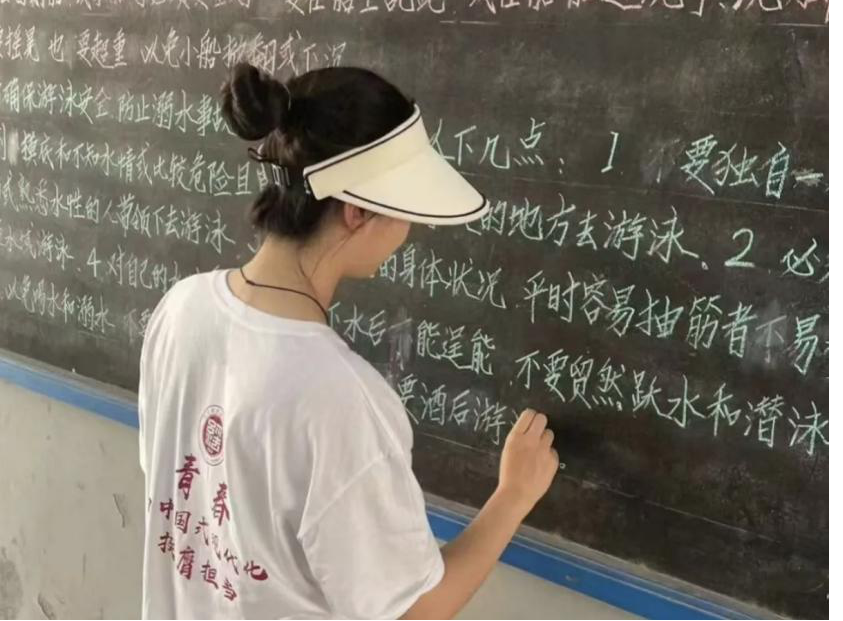 要摇尾 也 要超重 以免小船掀翻或下沉
确保游泳安全 防止溺水事
以下几点： 1 要独自一
摸底和不知水情或比较危险且
的地方去游泳、2 必
或熟悉水性的人带领下去游泳、
的身体状况 平时容易抽筋者不易
水域游泳、4 对自己的水
下水后 能逞能 不要贸然跃水和潜泳
以免喝水和溺水 不要
要酒后游
青春
中国式现代化
挺膺担当